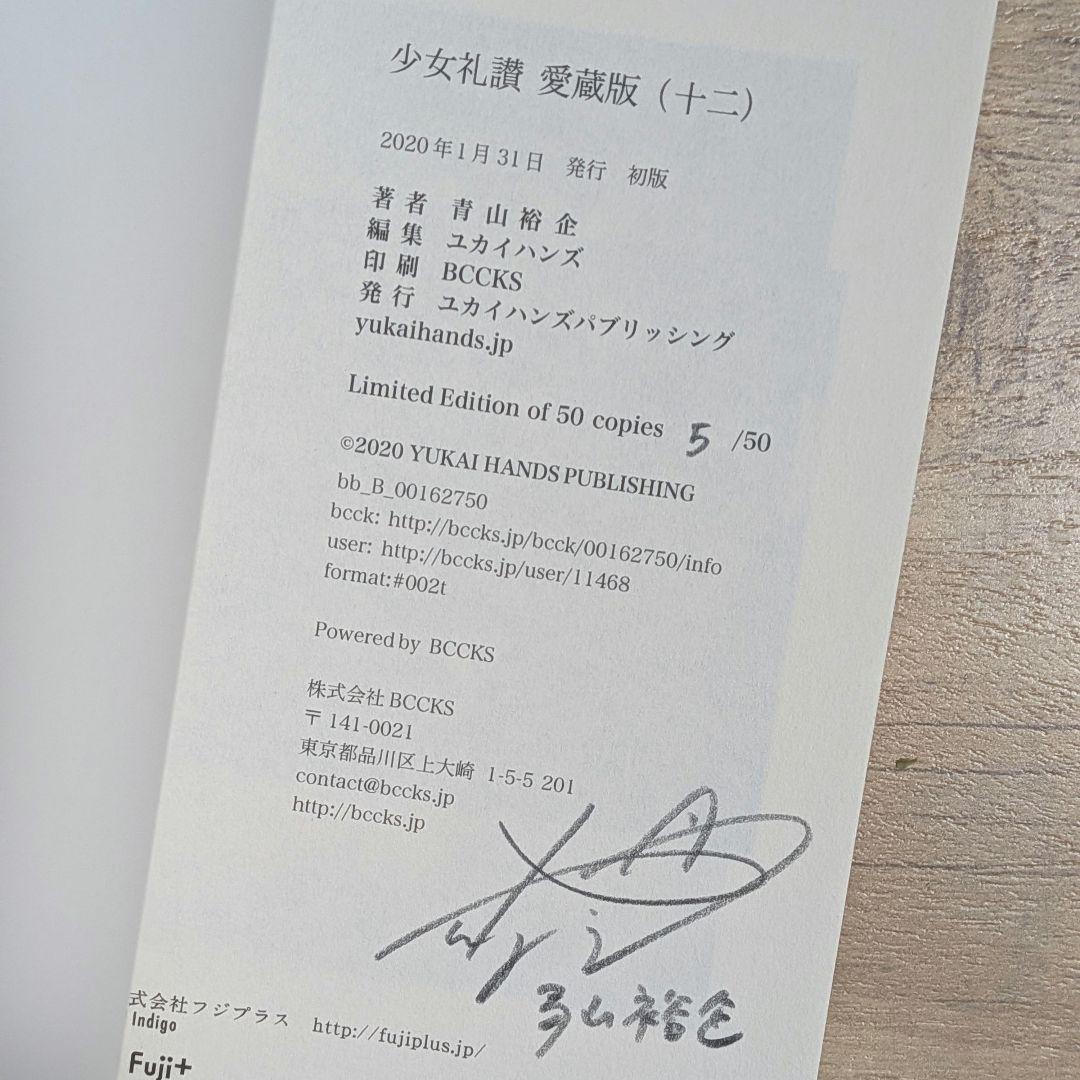 少女礼讃 愛蔵版（十二）
2020年1月31日 発行 初版
著者 青山裕企
編集 ユカイハンズ
印刷 BCCKS
発行 ユカイハンズパブリッシング
yukaihands.jp
Limited Edition of 50 copies 5 /50
©2020 YUKAI HANDS PUBLISHING
bb_B_00162750
bcck: http://bccks.jp/bcck/00162750/info
user: http://bccks.jp/user/11468
format:#002t
Powered by BCCKS
株式会社BCCKS
〒141-0021
東京都品川区上大崎 1-5-5 201
contact@bccks.jp
http://bccks.jp
青山裕企
式会社フジプラス http://fujiplus.jp/
Indigo
Fuji+